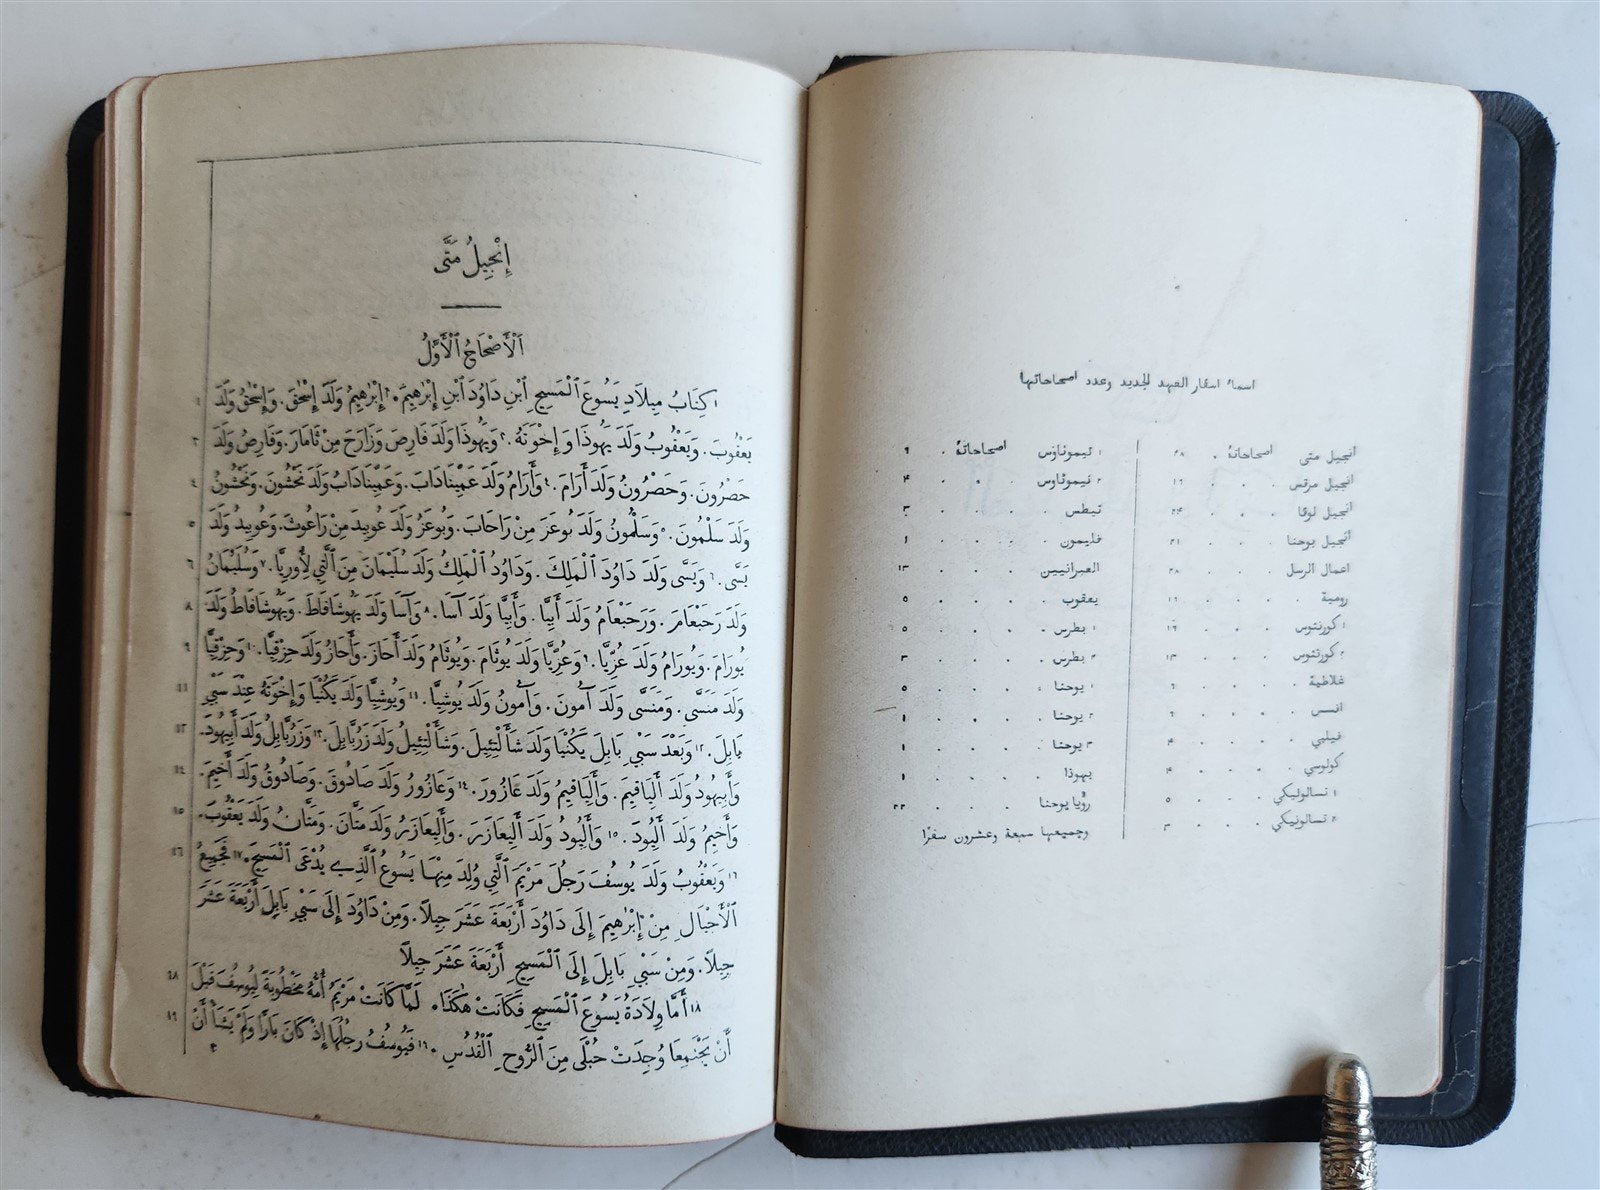 اسماء اسفار العهد الجديد وعدد اصحاحاتها
انجيل متى اصحاحاتهُ . ٢٨
انجيل مرقس . . . ١٦
انجيل لوقا . . . ٢٤
انجيل يوحنا . . . ٢١
اعمال الرسل . . . ٢٨
رومية . . . . ١٦
١ كورنثوس . . . ١٦
٢ كورنثوس . . . ١٣
غلاطية . . . . ٦
افسس . . . . ٦
فيلبي . . . . ٤
كولوسي . . . . ٤
١ تسالونيكي . . . ٥
٢ تسالونيكي . . . ٣
١ تيموثاوس اصحاحاتهُ . ٦
٢ تيموثاوس . . . ٤
تيطس . . . . ٣
فليمون . . . . ١
العبرانيين . . . ١٣
يعقوب . . . . ٥
١ بطرس . . . . ٥
٢ بطرس . . . . ٣
١ يوحنا . . . . ٥
٢ يوحنا . . . . ١
٣ يوحنا . . . . ١
يهوذا . . . . ١
رؤيا يوحنا . . . ٢٢
وجميعها سبعة وعشرون سفرًا
إِنْجِيلُ مَتَّى
اَلْأَصْحَاحُ ٱلْأَوَّلُ
١ كِتَابُ مِيلَادِ يَسُوعَ ٱلْمَسِيحِ ٱبْنِ دَاوُدَ ٱبْنِ إِبْرٰهِيمَ. ٢ إِبْرٰهِيمُ وَلَدَ إِسْحٰقَ. وَإِسْحٰقُ وَلَدَ
يَعْقُوبَ. وَيَعْقُوبُ وَلَدَ يَهُوذَا وَإِخْوَتَهُ. ٣ وَيَهُوذَا وَلَدَ فَارِصَ وَزَارَحَ مِنْ ثَامَارَ. وَفَارِصُ وَلَدَ ٣
حَصْرُونَ. وَحَصْرُونُ وَلَدَ أَرَامَ. ٤ وَأَرَامُ وَلَدَ عَمِّينَادَابَ. وَعَمِّينَادَابُ وَلَدَ نَحْشُونَ. وَنَحْشُونُ ٤
وَلَدَ سَلْمُونَ. ٥ وَسَلْمُونُ وَلَدَ بُوعَزَ مِنْ رَاحَابَ. وَبُوعَزُ وَلَدَ عُوبِيدَ مِنْ رَاعُوثَ. وَعُوبِيدُ وَلَدَ ٥
يَسَّى. ٦ وَيَسَّى وَلَدَ دَاوُدَ ٱلْمَلِكَ. وَدَاوُدُ ٱلْمَلِكُ وَلَدَ سُلَيْمَانَ مِنَ ٱلَّتِي لِأُورِيَّا. ٧ وَسُلَيْمَانُ ٦
وَلَدَ رَحَبْعَامَ. وَرَحَبْعَامُ وَلَدَ أَبِيَّا. وَأَبِيَّا وَلَدَ آسَا. ٨ وَآسَا وَلَدَ يَهُوشَافَاطَ. وَيَهُوشَافَاطُ وَلَدَ ٨
يُورَامَ. وَيُورَامُ وَلَدَ عُزِّيَّا. ٩ وَعُزِّيَّا وَلَدَ يُوثَامَ. وَيُوثَامُ وَلَدَ أَحَازَ. وَأَحَازُ وَلَدَ حِزْقِيَّا. ١٠ وَحِزْقِيَّا ٩
وَلَدَ مَنَسَّى. وَمَنَسَّى وَلَدَ آمُونَ. وَآمُونُ وَلَدَ يُوشِيَّا. ١١ وَيُوشِيَّا وَلَدَ يَكُنْيَا وَإِخْوَتَهُ عِنْدَ سَبْيِ ١١
بَابِلَ. ١٢ وَبَعْدَ سَبْيِ بَابِلَ يَكُنْيَا وَلَدَ شَأَلْتِئِيلَ. وَشَأَلْتِئِيلُ وَلَدَ زَرُبَّابِلَ. ١٣ وَزَرُبَّابِلُ وَلَدَ أَبِيهُودَ. ١٢
وَأَبِيهُودُ وَلَدَ أَلِيَاقِيمَ. وَأَلِيَاقِيمُ وَلَدَ عَازُورَ. ١٤ وَعَازُورُ وَلَدَ صَادُوقَ. وَصَادُوقُ وَلَدَ أَخِيمَ. ١٤
وَأَخِيمُ وَلَدَ أَلِيُودَ. ١٥ وَأَلِيُودُ وَلَدَ أَلِيعَازَرَ. وَأَلِيعَازَرُ وَلَدَ مَتَّانَ. وَمَتَّانُ وَلَدَ يَعْقُوبَ. ١٥
١٦ وَيَعْقُوبُ وَلَدَ يُوسُفَ رَجُلَ مَرْيَمَ ٱلَّتِي وُلِدَ مِنْهَا يَسُوعُ ٱلَّذِي يُدْعَى ٱلْمَسِيحَ. ١٧ فَجَمِيعُ ١٦
ٱلْأَجْيَالِ مِنْ إِبْرٰهِيمَ إِلَى دَاوُدَ أَرْبَعَةَ عَشَرَ جِيلًا. وَمِنْ دَاوُدَ إِلَى سَبْيِ بَابِلَ أَرْبَعَةَ عَشَرَ
جِيلًا. وَمِنْ سَبْيِ بَابِلَ إِلَى ٱلْمَسِيحِ أَرْبَعَةَ عَشَرَ جِيلًا
١٨ أَمَّا وِلَادَةُ يَسُوعَ ٱلْمَسِيحِ فَكَانَتْ هٰكَذَا. لَمَّا كَانَتْ مَرْيَمُ أُمُّهُ مَخْطُوبَةً لِيُوسُفَ قَبْلَ ١٨
أَنْ يَجْتَمِعَا وُجِدَتْ حُبْلَى مِنَ ٱلرُّوحِ ٱلْقُدُسِ. ١٩ فَيُوسُفُ رَجُلُهَا إِذْ كَانَ بَارًّا وَلَمْ يَشَأْ أَنْ ١٩